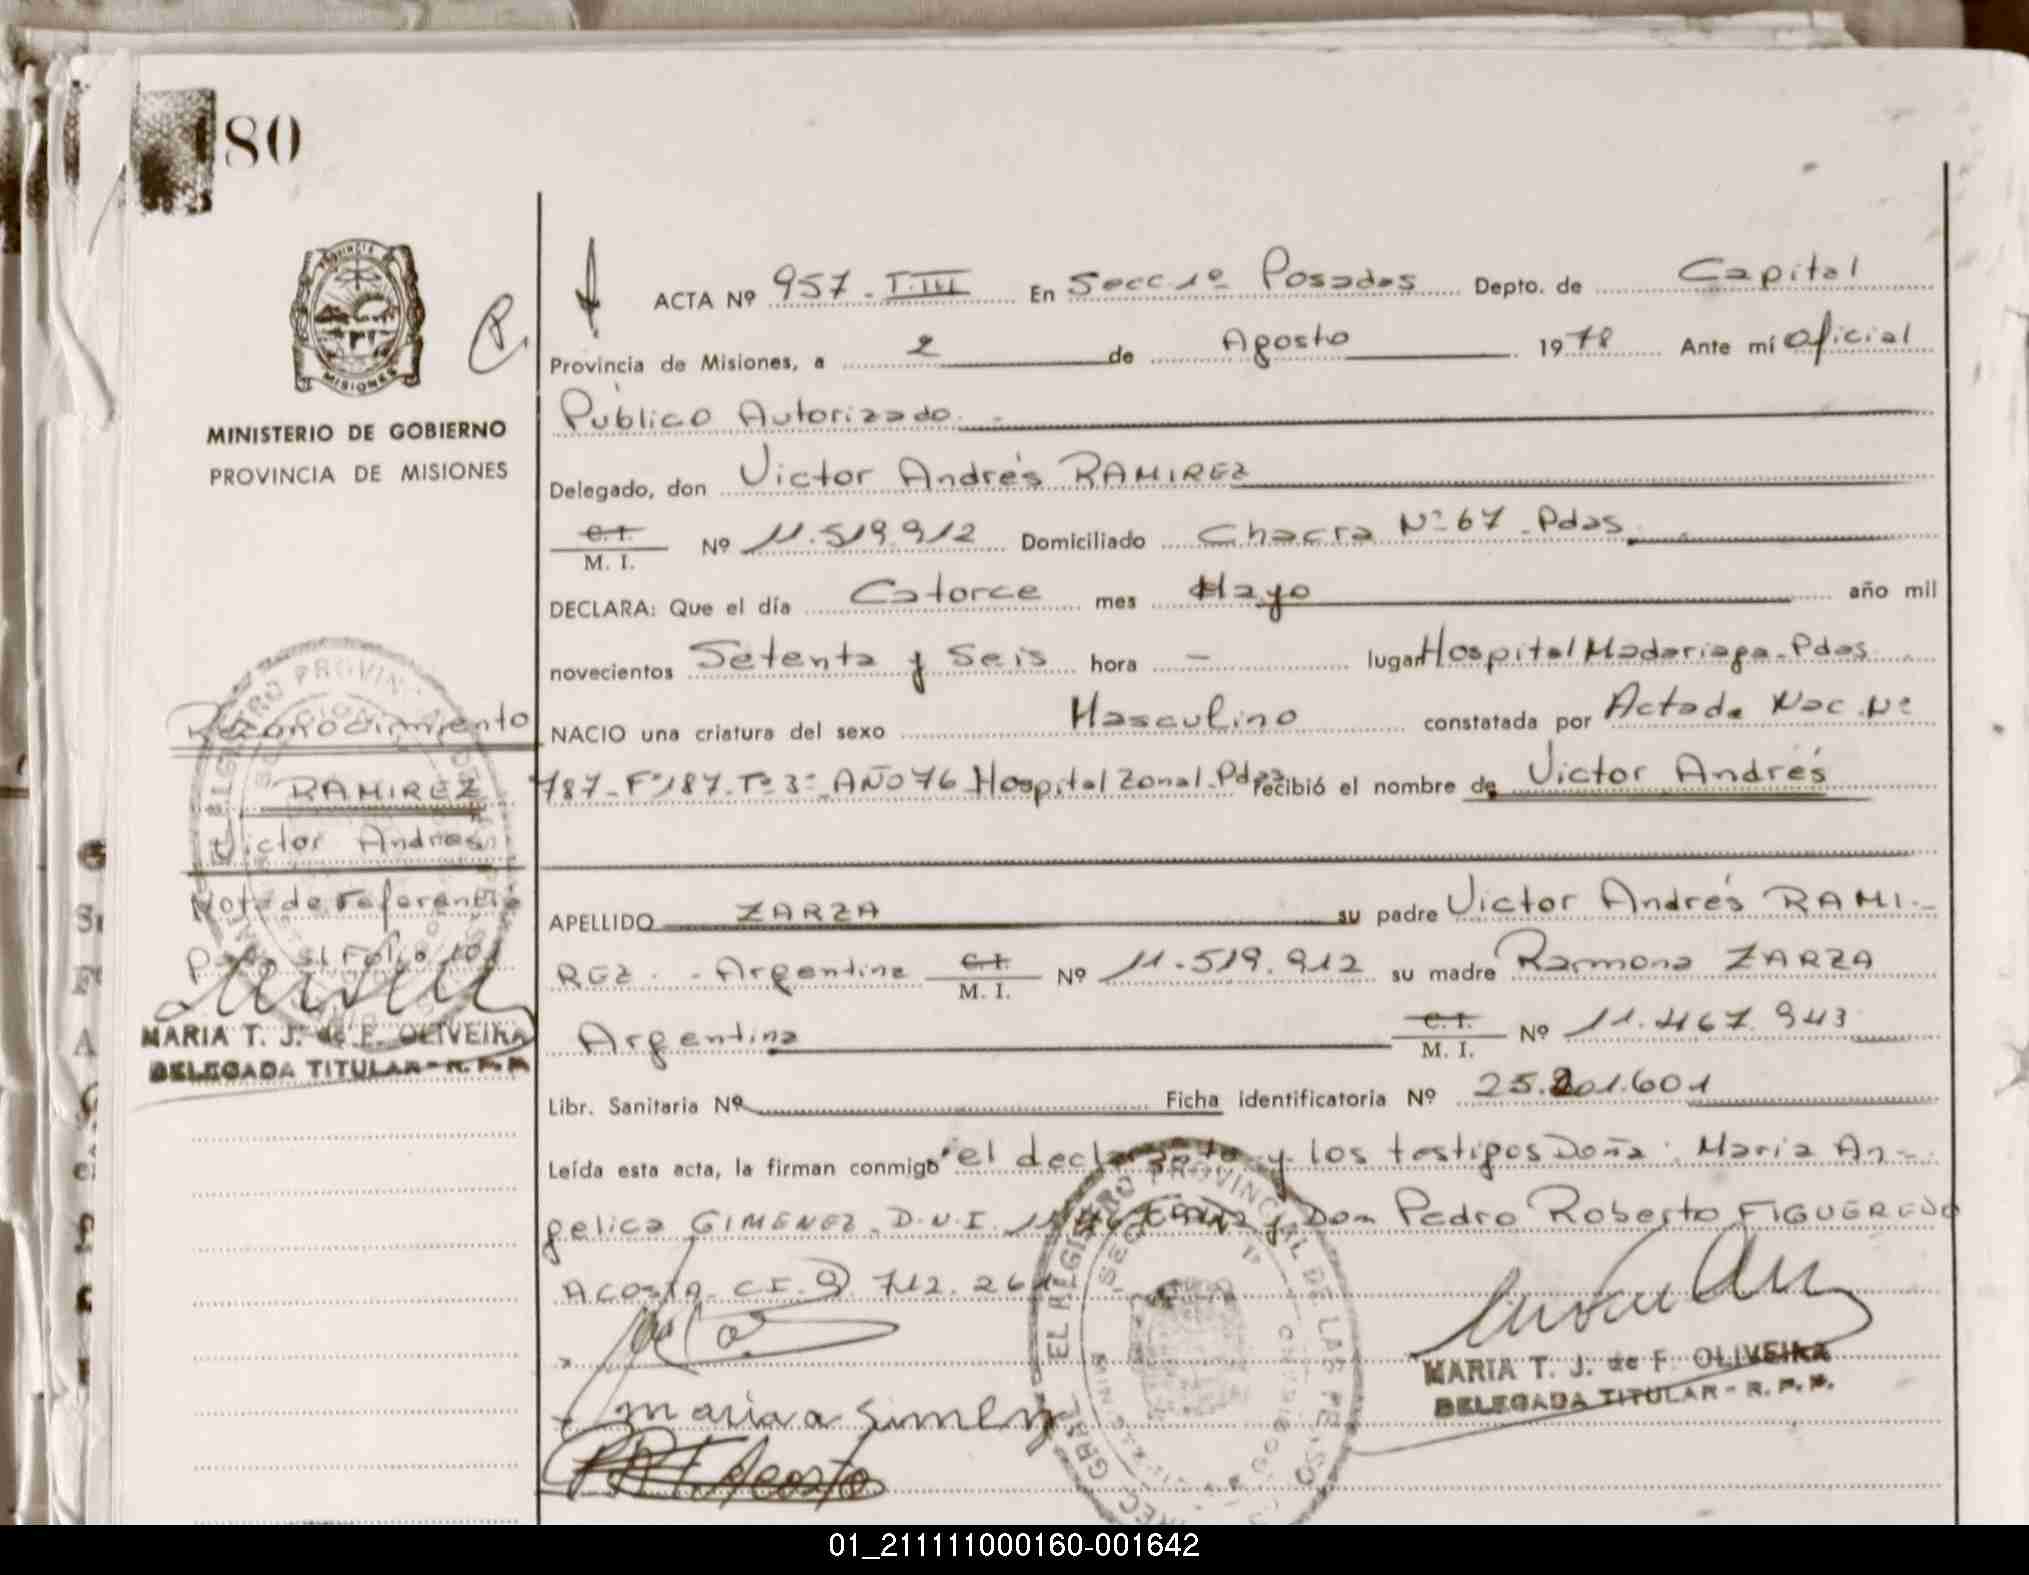 180
MINISTERIO DE GOBIERNO
PROVINCIA DE MISIONES
Reconocimiento
RAMIREZ
Victor Andres
Nota de referencia
MARIA T. J. de F. OLIVEIRA
DELEGADA TITULAR - R. P. P.
ACTA Nº 957 - T. III En Secc 1º Posadas Depto. de Capital
Provincia de Misiones, a 2 de Agosto 1978 Ante mí Oficial
Público Autorizado. -
Delegado, don Victor Andrés RAMIREZ
C. I.
M. I. Nº 11.519.912 Domiciliado Chacra Nº 67 - Pdas
DECLARA: Que el día Catorce mes Mayo año mil
novecientos Setenta y Seis hora - lugar Hospital Madariaga - Pdas
NACIO una criatura del sexo Masculino constatada por Acta de Nac. Nº
787 - Fº 187 - Tº 3º - AÑO 76 Hospital Zonal - Pdas recibió el nombre de Victor Andrés
APELLIDO ZARZA su padre Victor Andrés RAMI -
REZ - Argentino C. I. M. I. Nº 11.519.912 su madre Ramona ZARZA
Argentina C. I. M. I. Nº 11.467.943
Libr. Sanitaria Nº Ficha identificatoria Nº 25.201.601
Leída esta acta, la firman conmigo el declarante y los testigos Doña: Maria An -
gelica GIMENEZ - D.N.I. y Don Pedro Roberto FIGUEREDO
ACOSTA - C.I. 712.261
MARIA T. J. de F. OLIVEIRA
DELEGADA TITULAR - R. P. P.
01_211111000160-001642